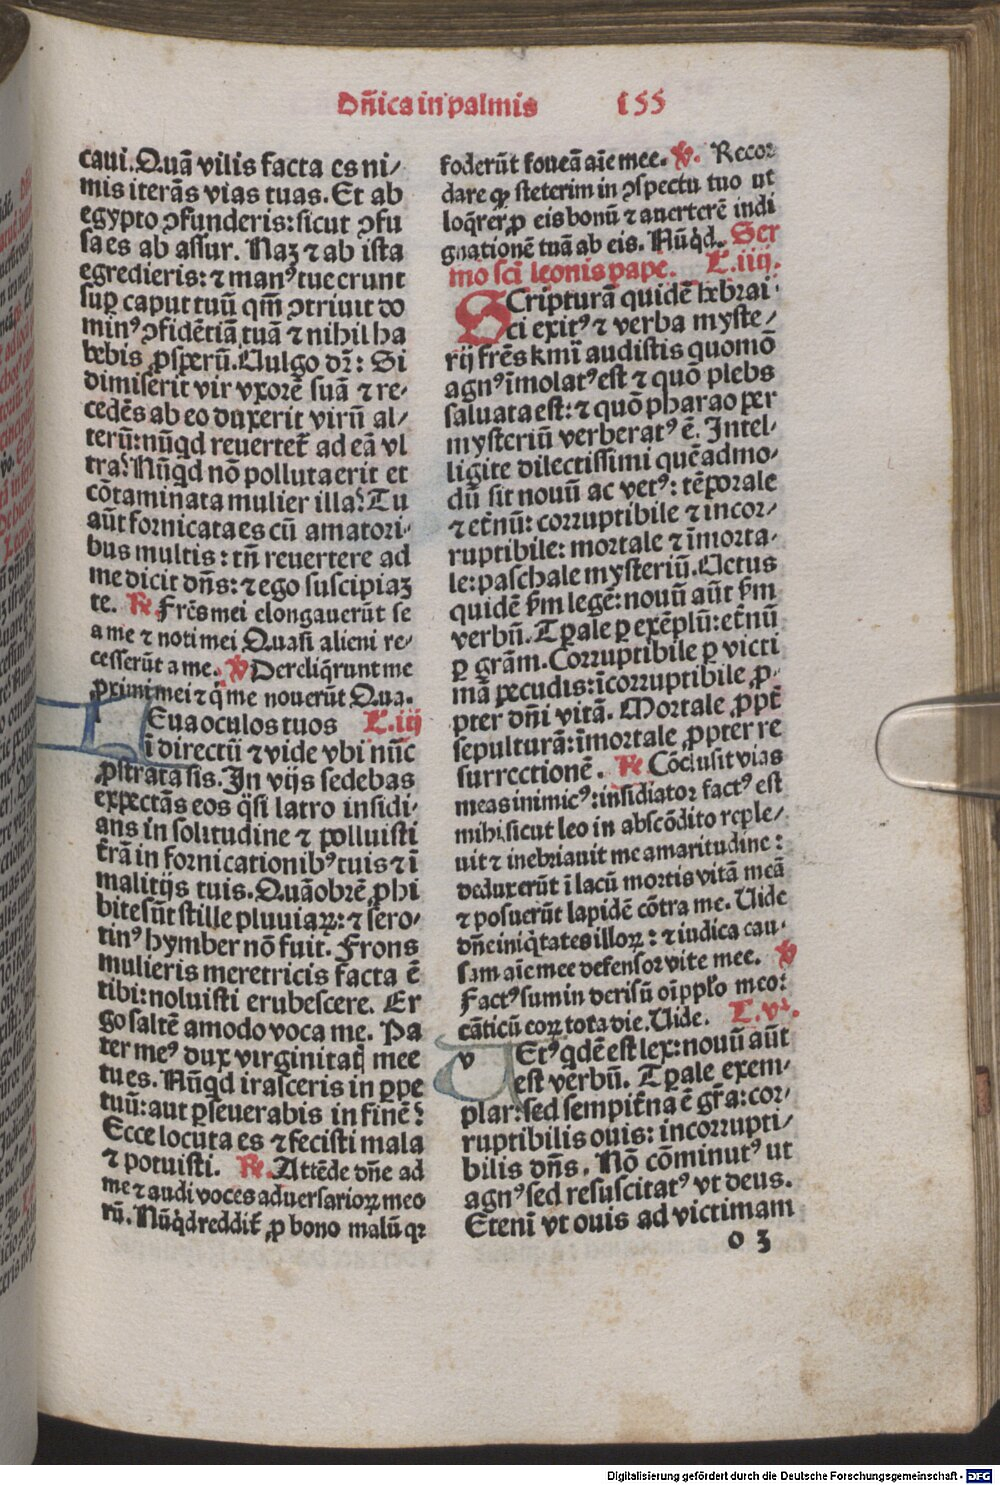 Dn̄ica in palmis 155
caui. Quā vilis facta es ni/
mis iterās vias tuas. Et ab
egypto ꝯfunderis: sicut ꝯfu
sa es ab assur. Naʒ ⁊ ab ista
egredieris: ⁊ manꝰ tue erunt
sup̲ caput tuū qm̄ ꝯtriuit do
minꝰ ꝯfidētiā tuā ⁊ nihil ha
bebis ꝓsperū. Uulgo dr̄: Si
dimiserit vir vxorē suā ⁊ re⸗
cedēs ab eo duxerit virū al/
terū: nūqd reuertet̄ ad eā vl
tra? Nūqd nō polluta erit et
cōtaminata mulier illa? Tu
aūt fornicata es cū amatori⸗
bus multis: tn̄ reuertere ad
me dicit dn̄s: ⁊ ego suscipiaʒ
te. ℟. Frēs mei elongauerūt se
a me ⁊ noti mei Quasi alieni re⸗
cesserūt a me. ℣ Dereliq̄runt me
ꝓximi mei ⁊ q̇ me nouerūt Qua.
Eua oculos tuos L. iij
ī directū ⁊ vide vbi nūc
ꝓstrata sis. In vijs sedebas
expectās eos q̇si latro insidi⸗
ans in solitudine ⁊ polluisti
t̄rā in fornicationibꝰ tuis ⁊ ī
malitijs tuis. Quāobrē ꝓhi
bite sūt stille pluuiaꝝ: ⁊ sero⸗
tinꝰ hymber nō fuit. Frons
mulieris meretricis facta ē
tibi: noluisti erubescere. Er
go saltē amodo voca me. Pa
ter meꝰ dux virginitatꝭ mee
tu es. Nūqd irasceris in ꝑpe
tuū: aut ꝑseuerabis in finē?
Ecce locuta es ⁊ fecisti mala
⁊ potuisti. ℟. Attēde dn̄e ad
me ⁊ audi voces aduersarioꝝ meo
rū. Nūq̇d reddit̄ ꝓ bono malū qꝛ
foderūt foueā aīe mee. ℣. Recor
dare ꝙ steterim in ꝯspectu tuo ut
loq̄rer ꝓ eis bonū ⁊ auerterē indi
gnationē tuā ab eis. Nūq̇d. Ser
mo sci leonis pape. L. iiij.
SCripturā quidē hebrai⸗
ci exitꝰ ⁊ verba myste/
rij frēs kmī audistis quomō
agnꝰ īmolatꝰ est ⁊ quō plebs
saluata est: ⁊ quō pharao per
mysteriū verberatꝰ ē. Intel⸗
ligite dilectissimi quēadmo⸗
dū sit nouū ac vetꝰ: tēporale
⁊ et̄nū: corruptibile ⁊ incor⸗
ruptibile: mortale ⁊ īmorta⸗
le: paschale mysteriū. Uetus
quidē ẜm legē: nouū aūt ẜm
verbū. Tꝑale ꝑ exēplū: et̄nū
ꝑ grām. Corruptibile ꝑ victi
mā pecudis: īcorruptibile ꝓ⸗
pter dn̄i vitā. Mortale ꝓpt̄
sepulturā: īmortale ꝓpter re
surrectionē. ℟ Cōclusit vias
meas inimicꝰ: insidiator factꝰ est
mihi sicut leo in abscōdito reple/
uit ⁊ inebriauit me amaritudine:
deduxerūt ī lacū mortis vitā meā
⁊ posuerūt lapidē cōtra me. Uide
dn̄e iniq̇tates illoꝝ: ⁊ iudica cau⸗
sam aīe mee defensor vite mee. ℣
Factꝰ sum in derisū oī pplo meo:
cāticū eoꝝ tota die. Uide. L. v.
v Etꝰ qdē est lex: nouū aūt
est verbū. Tꝑale exem⸗
plar: sed sempit̄na ē gr̄a: cor⸗
ruptibilis ouis: incorrupti/
bilis dn̄s. Nō cōminutꝰ ut
agnꝰ sed resuscitatꝰ vt deus.
Etenī vt ouis ad victimam
o 3
Digitalisierung gefördert durch die Deutsche Forschungsgemeinschaft - DFG